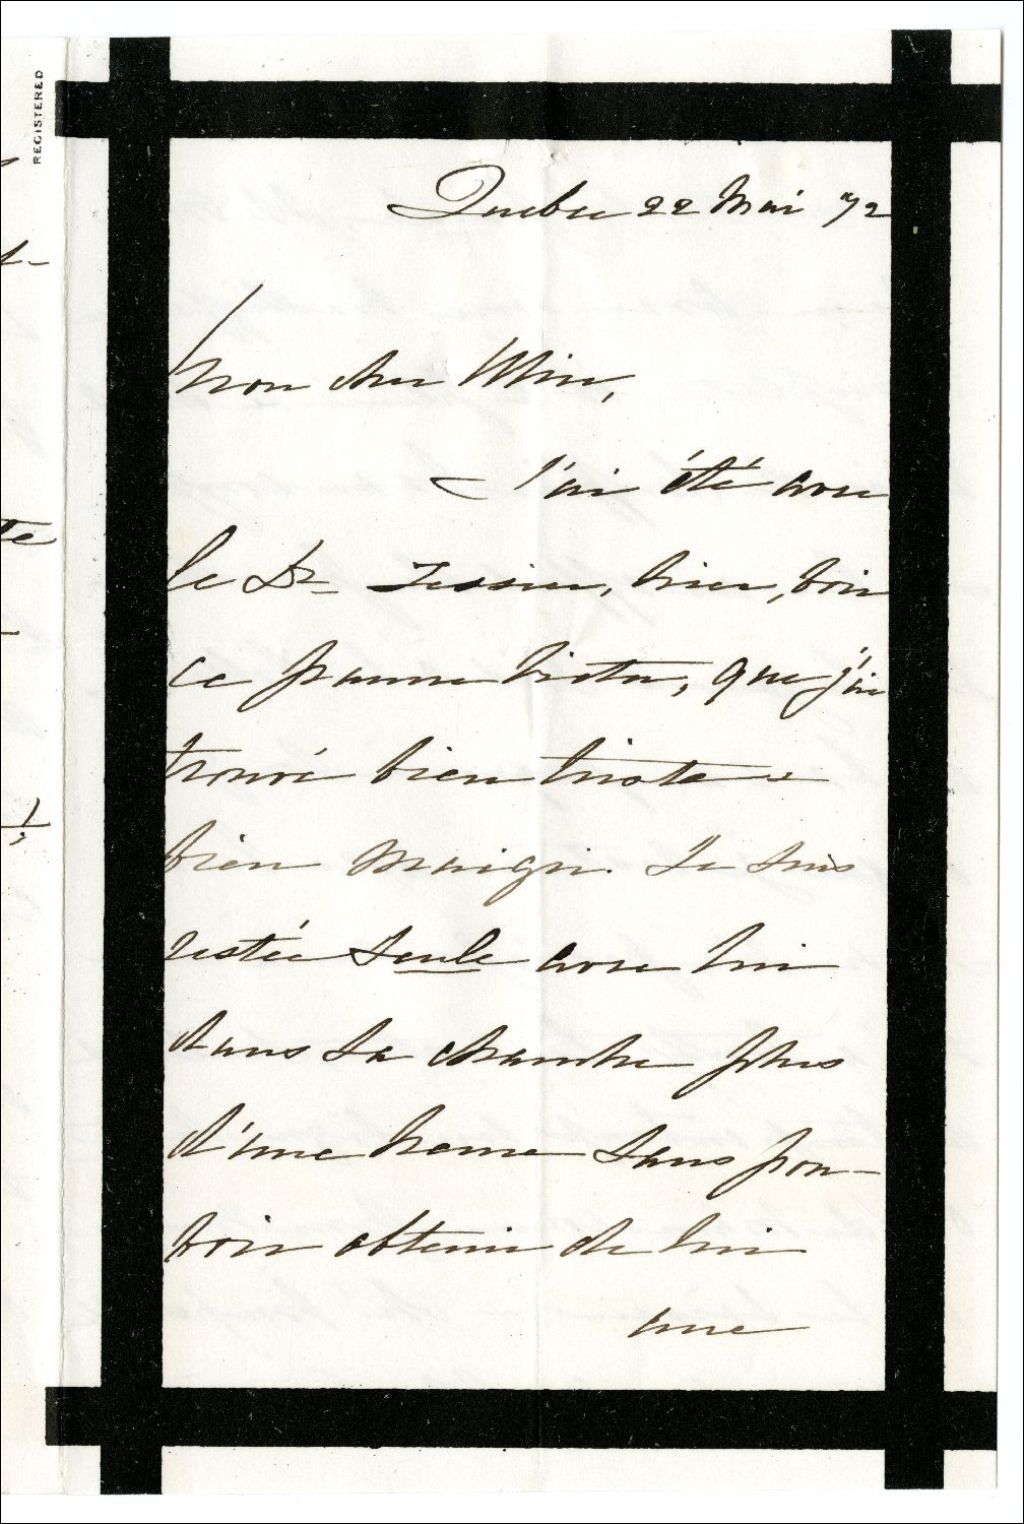 REGISTERED
te
Quebec 22 Mai 72
Mon cher Wim,
J'ai été avec
le Dr Tessier, hier, voir
ce pauvre Victor, que j'ai
trouvé bien triste &
bien maigri. Je suis
restée seule avec lui
dans sa chambre plus
d'une heure sans pou-
voir obtenir de lui
une